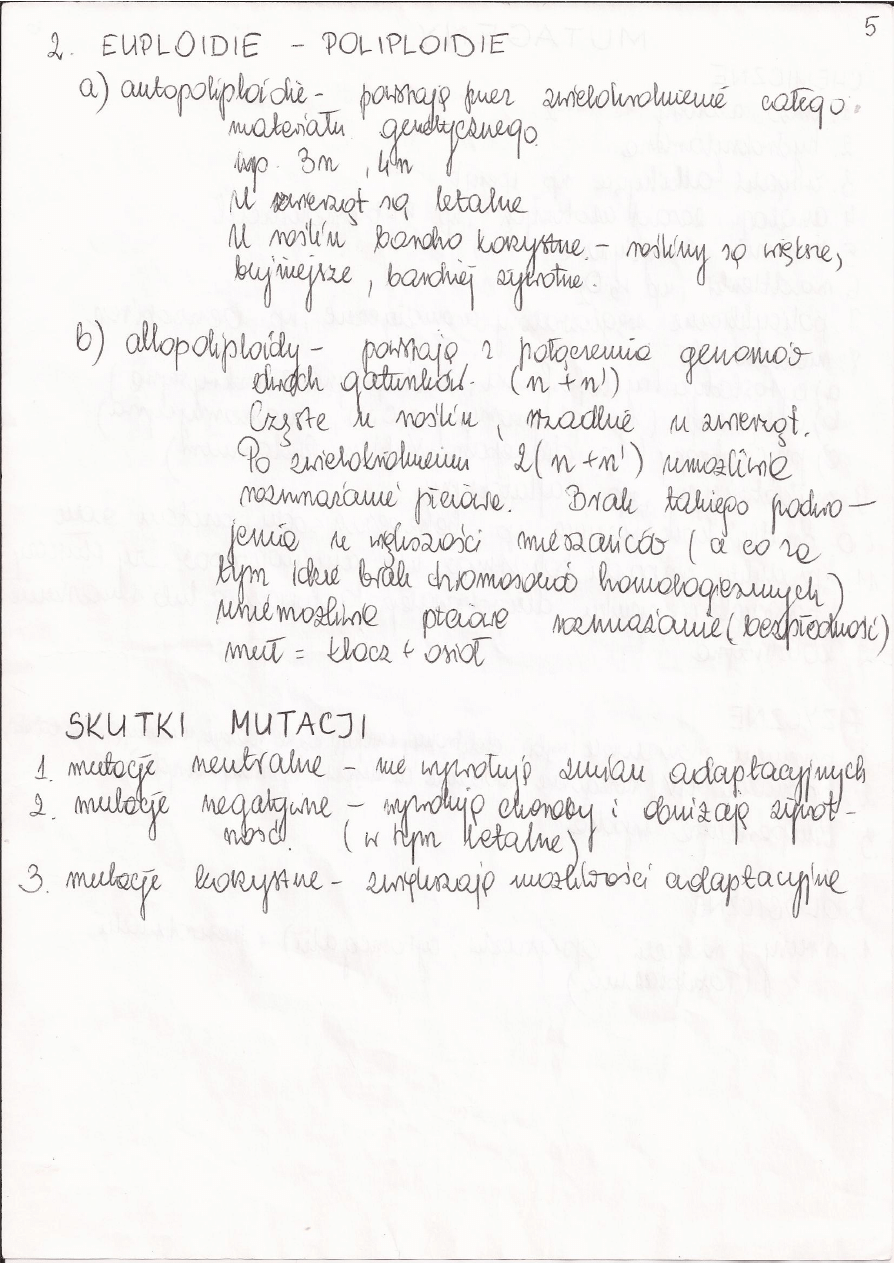 5
2. EUPLOIDIE - POLIPLOIDIE
a) autopoliploidie - powstają przez zwielokrotnienie całego
materiału genetycznego
np. 3n, 4n
U zwierząt są letalne
U roślin bardzo korzystne - rośliny są większe,
bujniejsze, bardziej żywotne.
b) allopoliploidy - powstają z połączenia genomów
dwóch gatunków. (n + n')
Częste u roślin, rzadkie u zwierząt.
Po zwielokrotnieniu 2(n + n') umożliwia
rozmnażanie płciowe. Brak takiego podwo-
jenia u większości mieszańców (a co za
tym idzie brak chromosomów homologicznych)
uniemożliwia płciowe rozmnażanie (bezpłodność)
muł = klacz + osioł
SKUTKI MUTACJI
1. mutacje neutralne - nie wywołują zmian adaptacyjnych
2. mutacje negatywne - wywołują choroby i obniżają żywot-
ność. (w tym letalne)
3. mutacje korzystne - zwiększają możliwości adaptacyjne